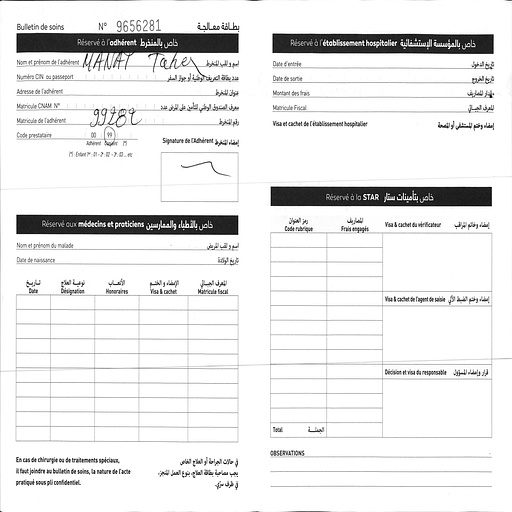 Bulletin de soins N° 9656281 بطاقة معالجة
Réservé à l'adhérent خاص بالمنخرط
Nom et prénom de l'adhérent MANAT Taher اسم و لقب المنخرط
Numéro CIN ou passeport عدد بطاقة التعريف الوطنية أو جواز السفر
Adresse de l'adhérent عنوان المنخرط
Matricule CNAM N° معرف الصندوق الوطني للتأمين على المرض عدد
Matricule de l'adhérent 99282 رقم المنخرط
Code prestataire 00 99 Signature de l'Adhérent إمضاء المنخرط
Adhérent Conjoint (*)
(*) : Enfant 1er : 01 - 2e : 02 - 3e : 03 ... etc
Réservé aux médecins et praticiens خاص بالأطباء والممارسين
Nom et prénom du malade اسم و لقب المريض
Date de naissance تاريخ الولادة
تاريخ نوعية العلاج الأتعاب الإمضاء و الختم المعرف الجبائي
Date Désignation Honoraires Visa & cachet Matricule fiscal
En cas de chirurgie ou de traitements spéciaux,
il faut joindre au bulletin de soin, la nature de l'acte
pratiqué sous pli confidentiel.
في حالات الجراحة أو العلاج الخاص
يجب مصاحبة بطاقة العلاج، بنوع العمل المنجز،
في ظرف سري.
Réservé à l'établissement hospitalier خاص بالمؤسسة الإستشفائية
Date d'entrée تاريخ الدخول
Date de sortie تاريخ الخروج
Montant des frais مقدار المصاريف
Matricule Fiscal المعرف الجبائي
Visa et cachet de l'établissement hospitalier إمضاء وختم المستشفى أو المصحة
Réservé à la STAR خاص بتأمينات ستار
رمز العنوان المصاريف
Code rubrique Frais engagés
Visa & cachet du vérificateur إمضاء وخاتم المراقب
Visa & cachet de l'agent de saisie إمضاء وختم الضبط الآلي
Décision et visa du responsable قرار وإمضاء المسؤول
Total الجملة
OBSERVATIONS